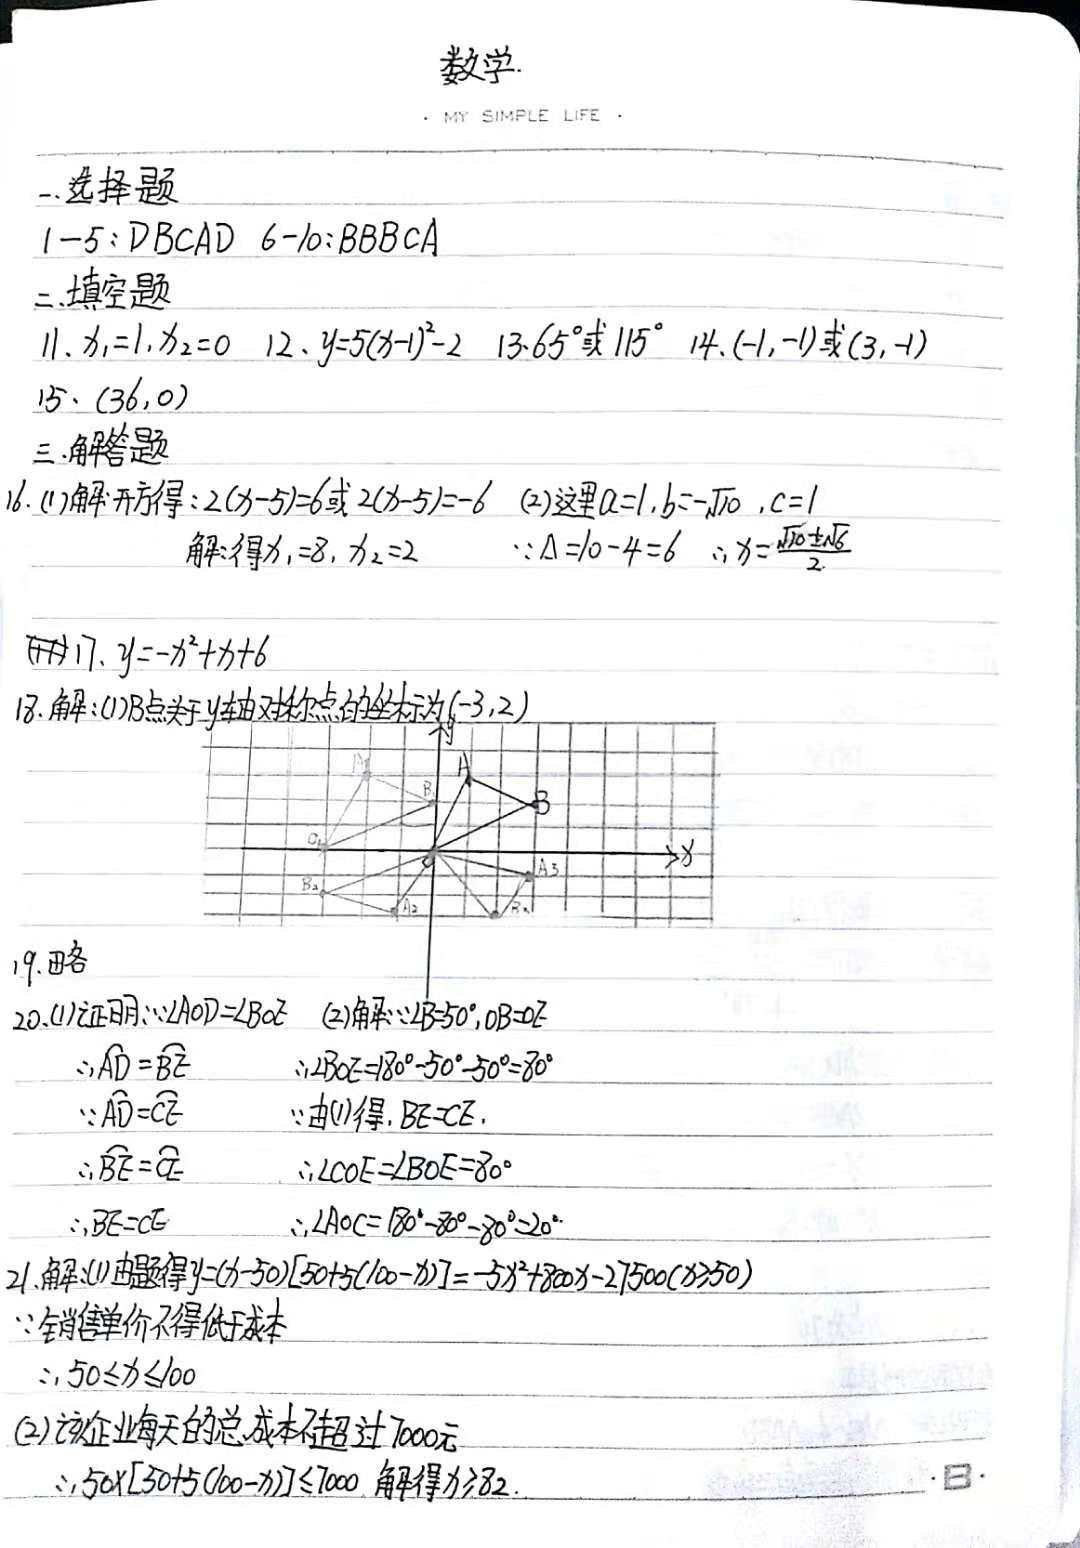 数学.
· MY SIMPLE LIFE ·
一.选择题
1-5:DBCAD 6-10:BBBCA
二.填空题
11、x₁=1,x₂=0 12、y=5(x-1)²-2 13.65°或115° 14、(-1,-1)或(3,-1)
15、(36,0)
三.解答题
16.(1)解:开方得:2(x-5)=6或2(x-5)=-6 (2)这里a=1,b=-√10,c=1
解得x₁=8,x₂=2 ∵Δ=10-4=6 ∴x=(√10±√6)/2
17、y=-x²+x+6
18.解:(1)B点关于y轴对称点的坐标为(-3,2)
y
A A
B B
O x
B₂ A3
A2
19.略
20.(1)证明:∵∠AOD=∠BOE (2)解:∵∠B=50°,OB=OE
∴AD⌒=BE⌒ ∴∠BOE=180°-50°-50°=80°
∵AD⌒=CE⌒ ∵由(1)得,BE=CE,
∴BE⌒=CE⌒ ∴∠COE=∠BOE=80°
∴BE=CE ∴∠AOC=180°-80°-80°=20°
21.解:(1)由题得y=(x-50)[50+5(100-x)]=-5x²+800x-27500(x≥50)
∵销售单价不得低于成本
∴50≤x≤100
(2)该企业每天的总成本不超过7000元
∴50x[50+5(100-x)]≤7000 解得x≥82.
·B·